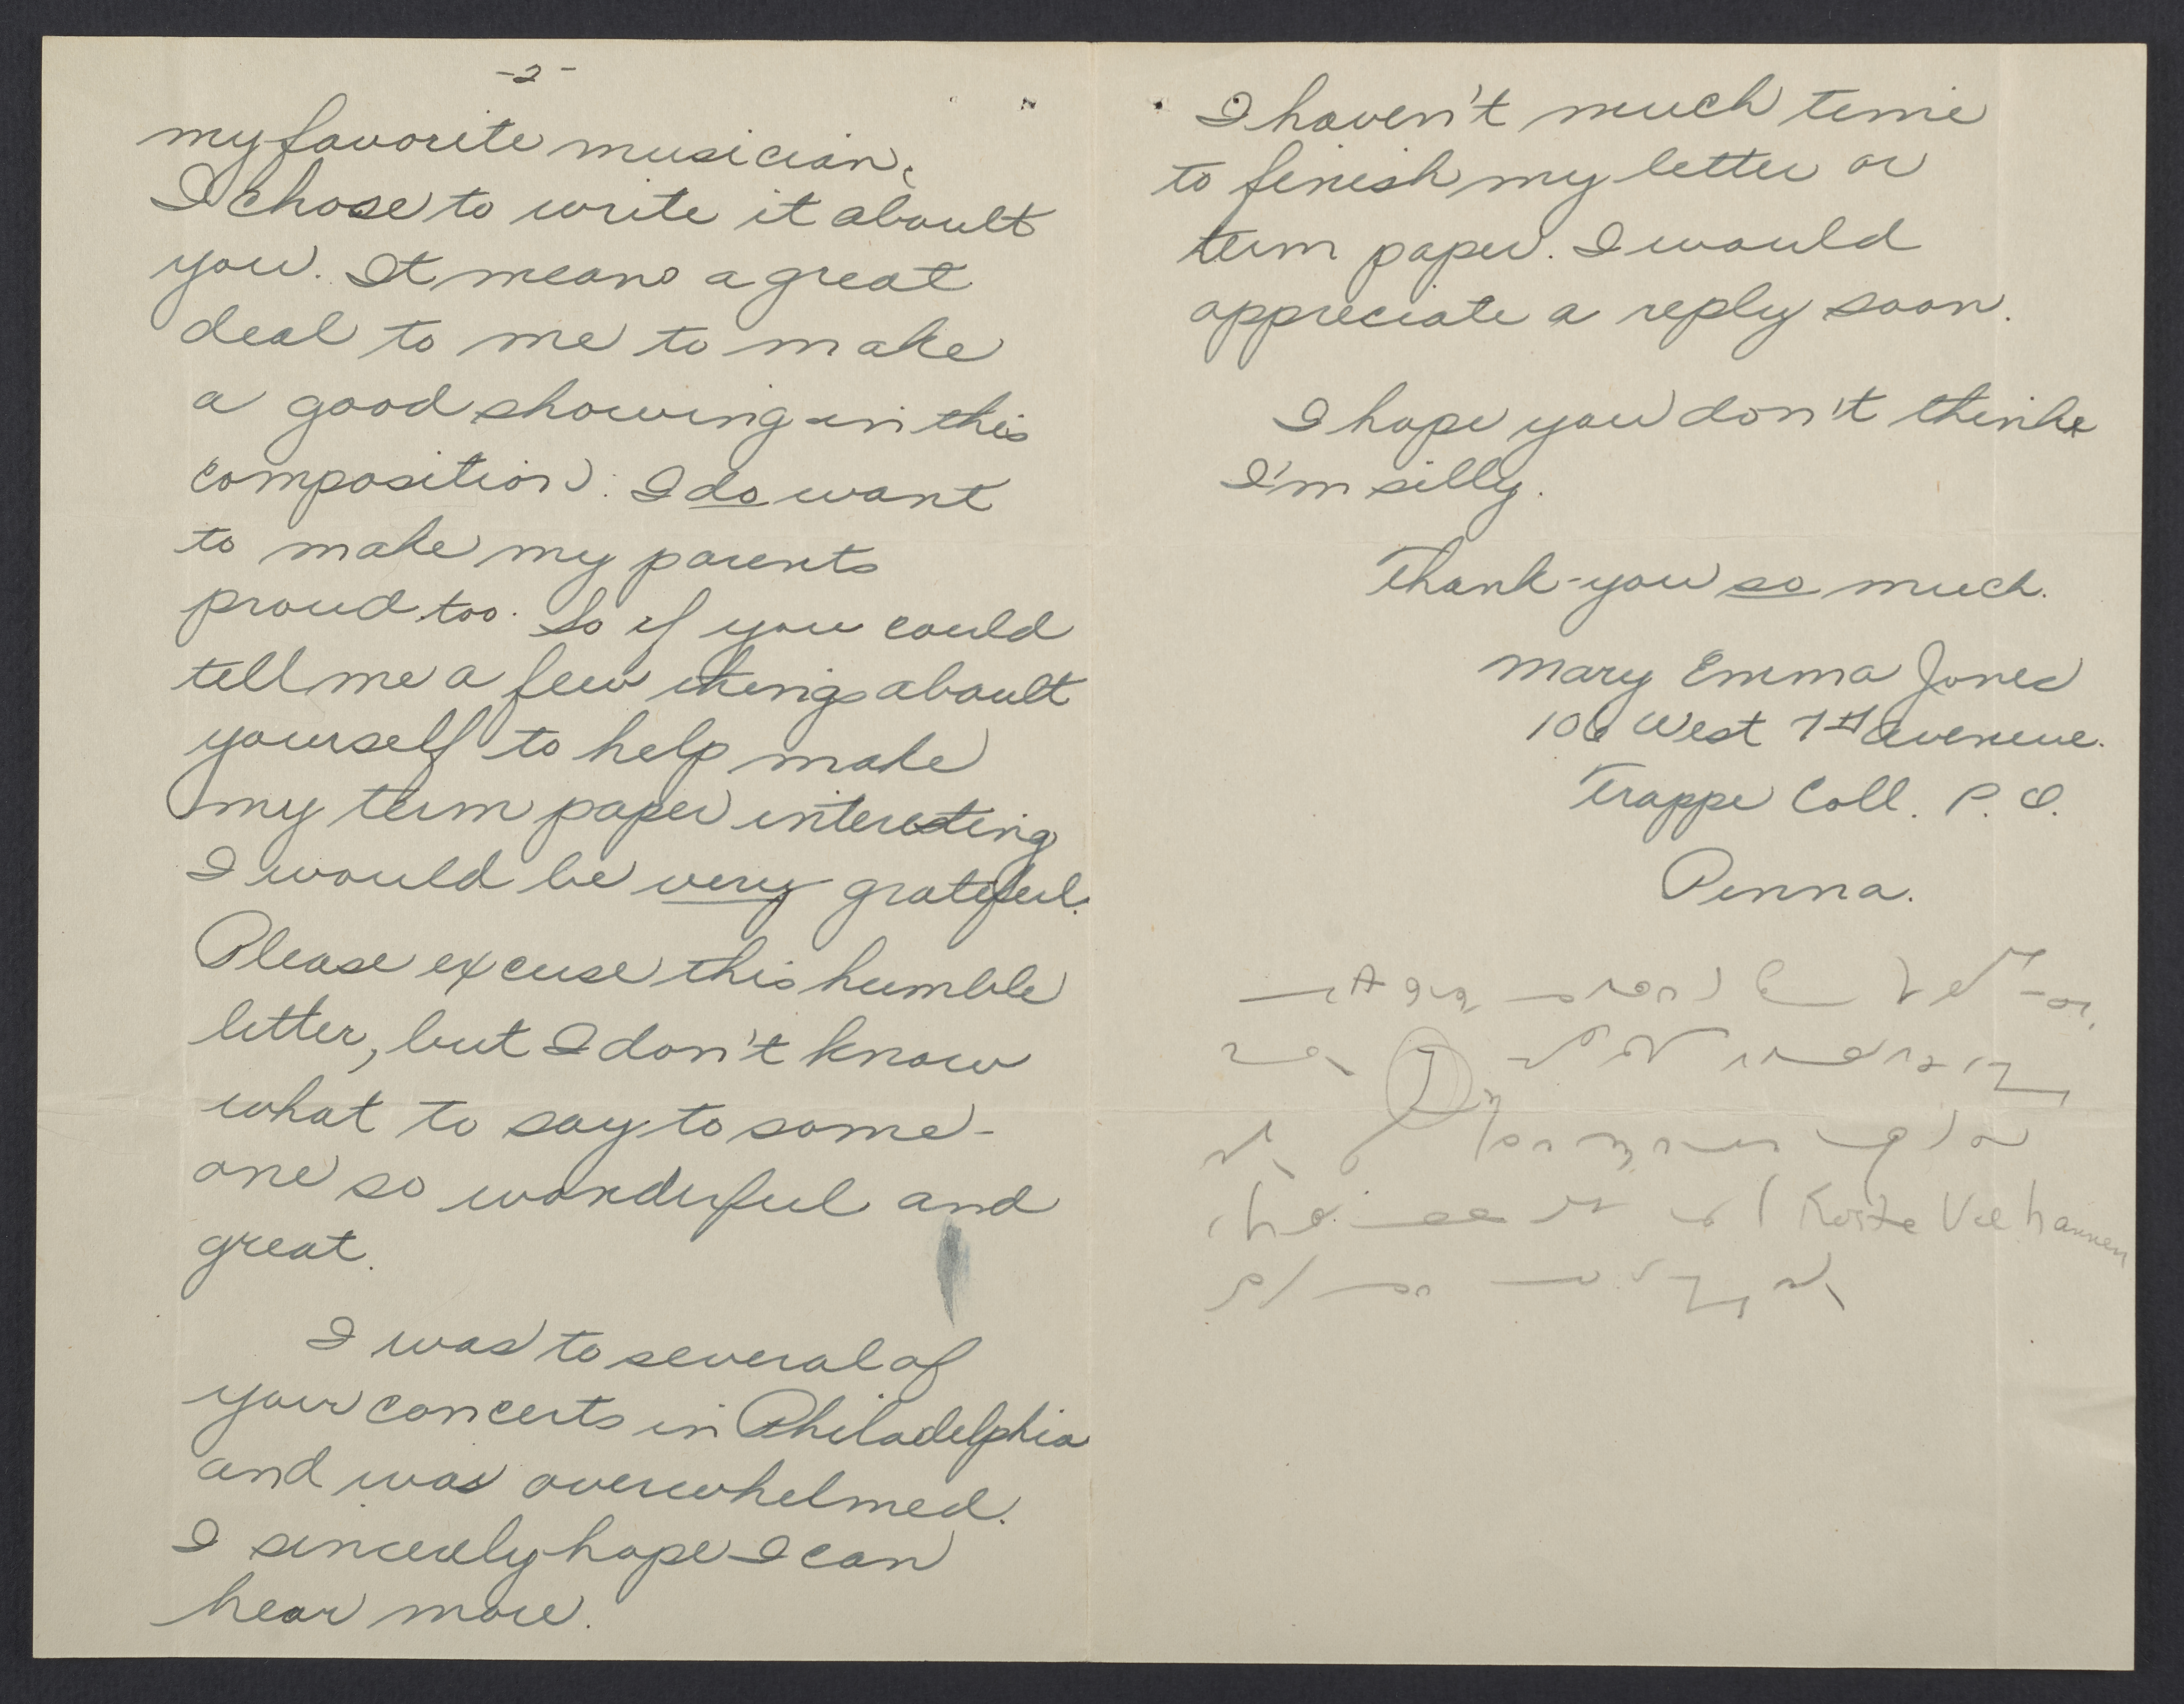 -2-
my favorite musician.
I chose to write it about
you. It means a great
deal to me to make
a good showing in this
composition. I do want
to make my parents
proud too. So if you could
tell me a few things about
yourself to help make
my term paper interesting
I would be very grateful.
Please excuse this humble
letter, but I don't know
what to say to some-
one so wonderful and
great.
I was to several of
your concerts in Philadelphia
and was overwhelmed.
I sincerely hope I can
hear more.
I haven't much time
to finish my letter or
term paper. I would
appreciate a reply soon.
I hope you don't think
I'm silly.
Thank-you so much.
Mary Emma Jones
106 West 7th Avenue.
Trappe Coll. P. O.
Penna.